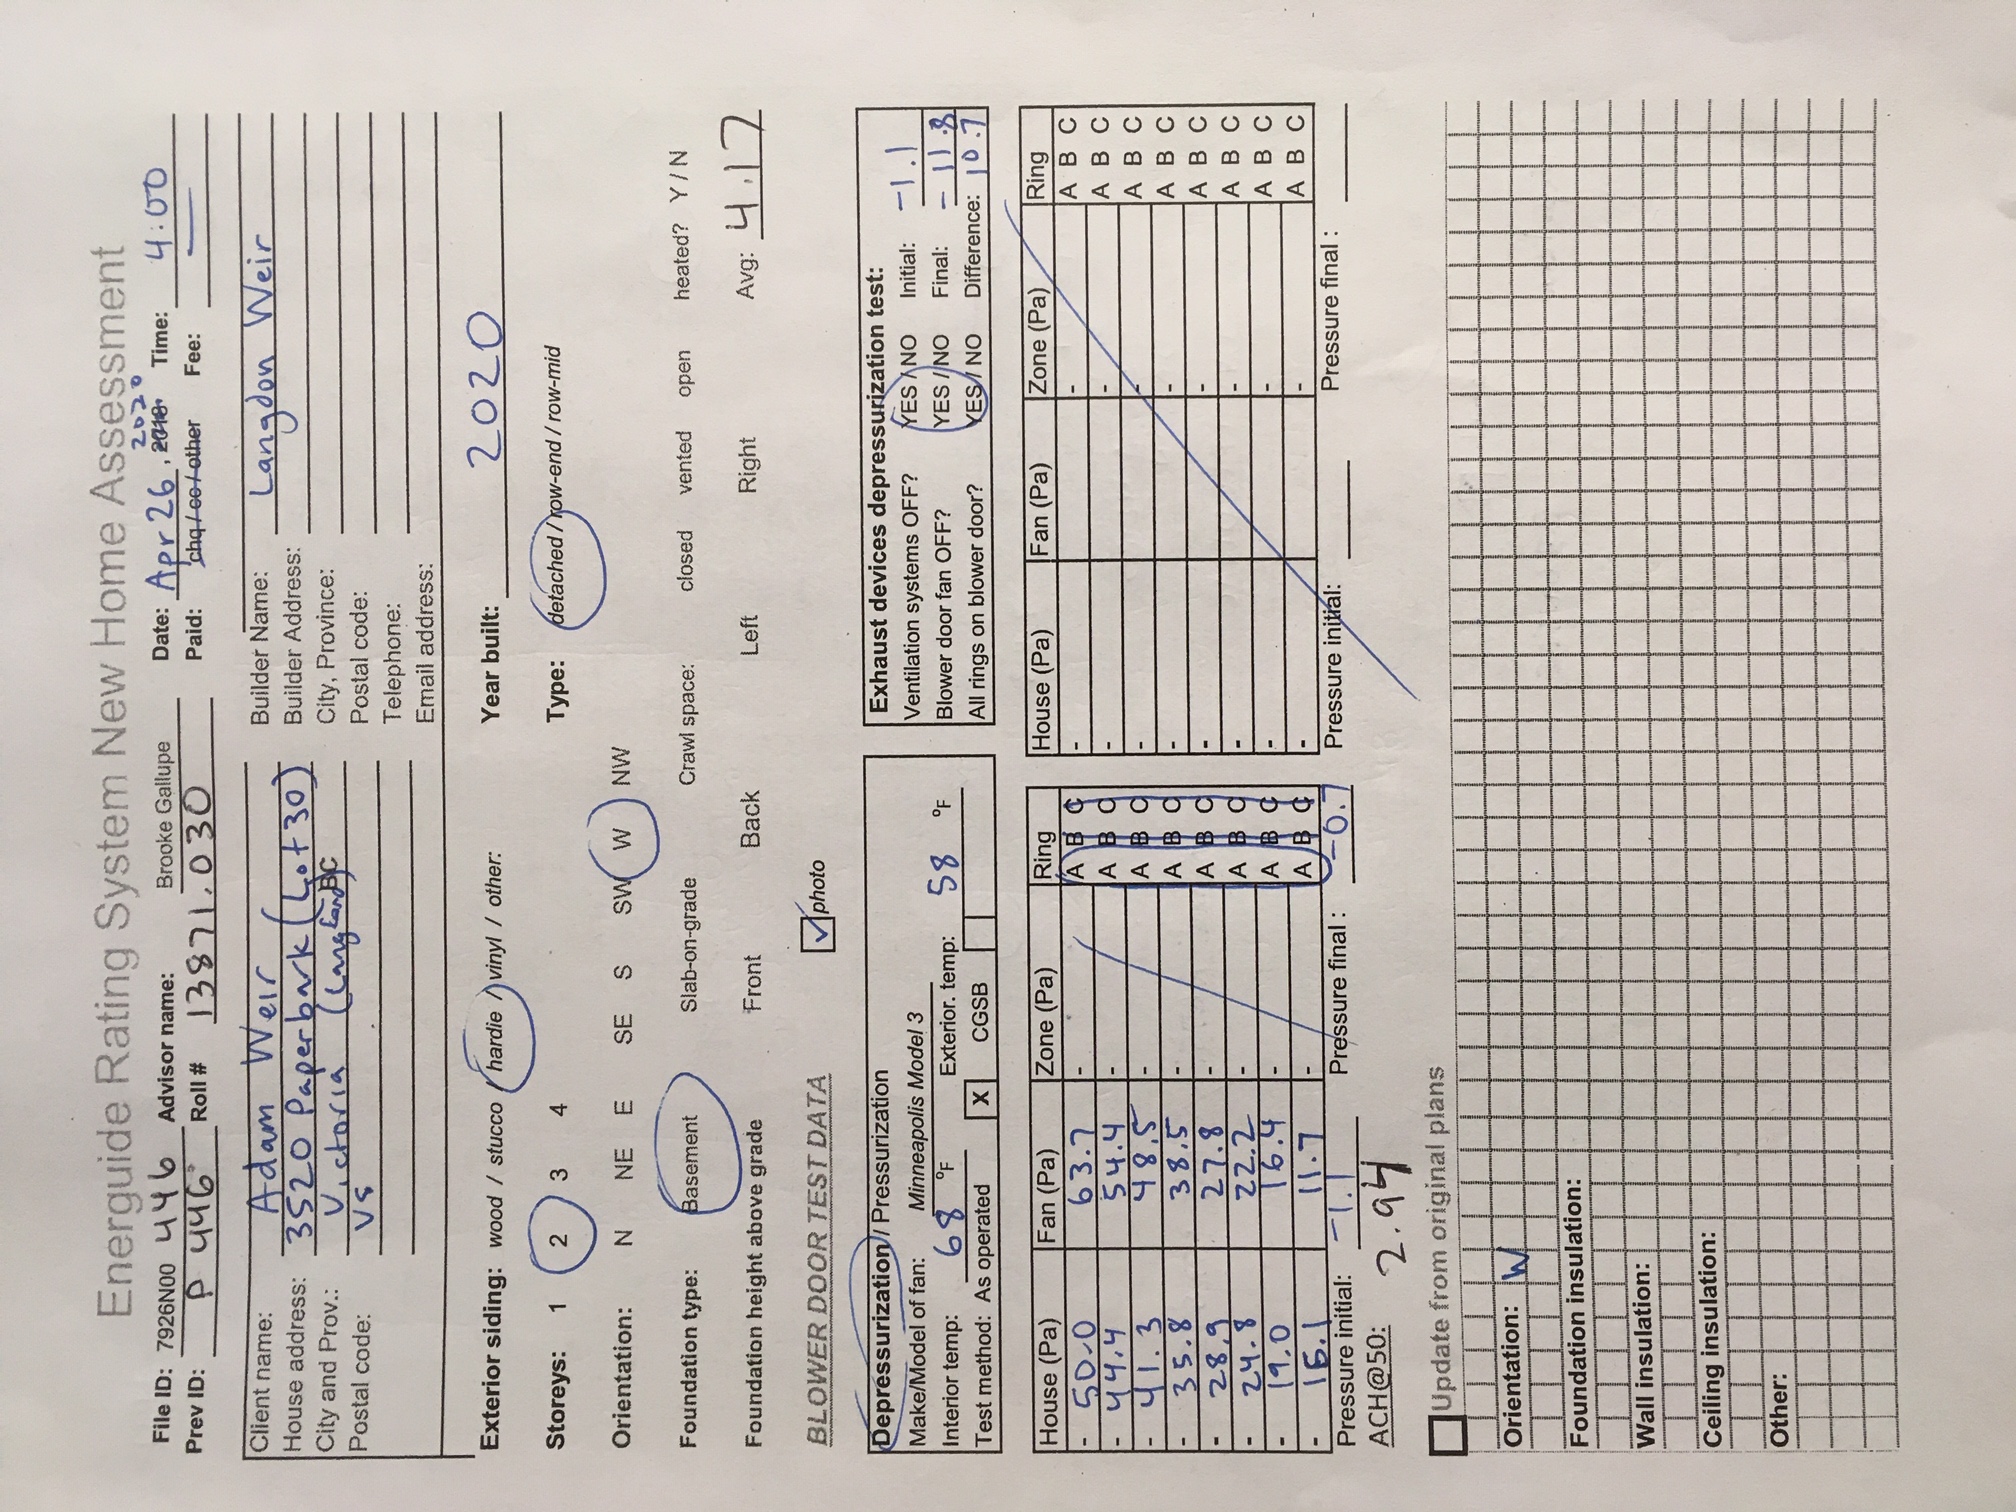 Energuide Rating System New Home Assessment
File ID: 7926N00 446 Advisor name: Brooke Gallupe Date: Apr 26, 2018 2020 Time: 4:00
Prev ID: P 446 Roll # 13871.030 Paid: chq / cc / other Fee: —
Client name: Adam Weir Builder Name: Langdon Weir
House address: 3520 Paperbark (Lot 30) Builder Address:
City and Prov.: Victoria (Langford) BC City, Province:
Postal code: Postal code:
Telephone:
Email address:
Exterior siding: wood / stucco / hardie / vinyl / other: Year built: 2020
Storeys: 1 2 3 4 Type: detached / row-end / row-mid
Orientation: N NE E SE S SW W NW
Foundation type: Basement Slab-on-grade Crawl space: closed vented open heated? Y / N
Foundation height above grade Front Back Left Right Avg: 4.17
BLOWER DOOR TEST DATA photo
Depressurization / Pressurization
Make/Model of fan: Minneapolis Model 3
Interior temp: 68 °F Exterior. temp: 58 °F
Test method: As operated X CGSB
Exhaust devices depressurization test:
Ventilation systems OFF? YES / NO Initial: -1.1
Blower door fan OFF? YES / NO Final: -11.8
All rings on blower door? YES / NO Difference: 10.7
House (Pa) Fan (Pa) Zone (Pa) Ring
- 50.0 63.7 - A B C
- 44.4 54.4 - A B C
- 41.3 48.5 - A B C
- 35.8 38.5 - A B C
- 28.9 27.8 - A B C
- 24.8 22.2 - A B C
- 19.0 16.4 - A B C
- 11.7 - A B C
Pressure initial: -1.1 Pressure final: -0.7
ACH@50: 2.94
House (Pa) Fan (Pa) Zone (Pa) Ring
- - A B C
- - A B C
- - A B C
- - A B C
- - A B C
- - A B C
- - A B C
- - A B C
Pressure initial: Pressure final :
Update from original plans
Orientation: W
Foundation insulation:
Wall insulation:
Ceiling insulation:
Other: